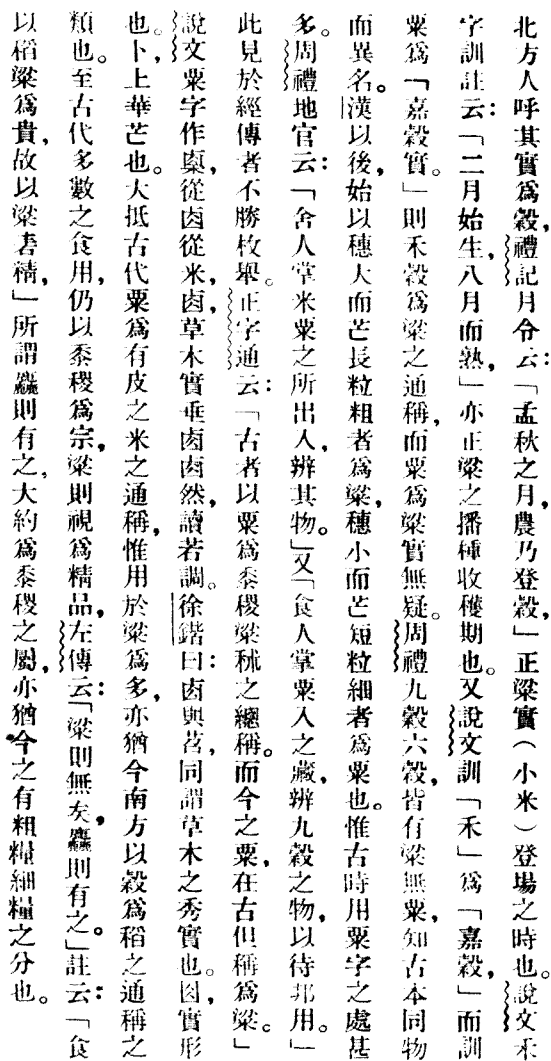 北方人呼其實爲穀，禮記月令云：「孟秋之月，農乃登穀，」正梁實（小米）登場之時也。說文禾
字訓註云：「二月始生，八月而熟，」亦正粱之播種收穫期也。又說文訓「禾」爲「嘉穀，」而訓
粟爲「嘉穀實。」則禾穀爲粱之通稱，而粟爲粱實無疑。周禮九穀六穀，皆有粱無粟，知古本同物
而異名。漢以後，始以穗大而芒長粒粗者爲粱，穗小而芒短粒細者爲粟也。惟古時用粟字之處甚
多。周禮地官云：「舍人掌米粟之所出入，辨其物。」又「倉人掌粟入之藏，辨九穀之物，以待邦用。」
此見於經傳者不勝枚舉。正字通云：「古者以粟爲黍稷粱秫之總稱。而今之粟，在古但稱爲粱。」
說文粟字作㮚，從𠧪從米，𠧪，草木實垂𠧪𠧪然，讀若調。徐鍇曰：𠧪與苕，同謂草木之秀實也。囟，實形
也。卜，上華芒也。大抵古代粟爲有皮之米之通稱，惟用於粱爲多，亦猶今南方以穀爲稻之通稱之
類也。至古代多數之食用，仍以黍稷爲宗，粱則視爲精品，左傳云：「粱則無矣，麤則有之。」註云：「食
以稻粱爲貴，故以粱表精，」所謂麤則有之，大約爲黍稷之屬，亦猶今之有粗糧細糧之分也。